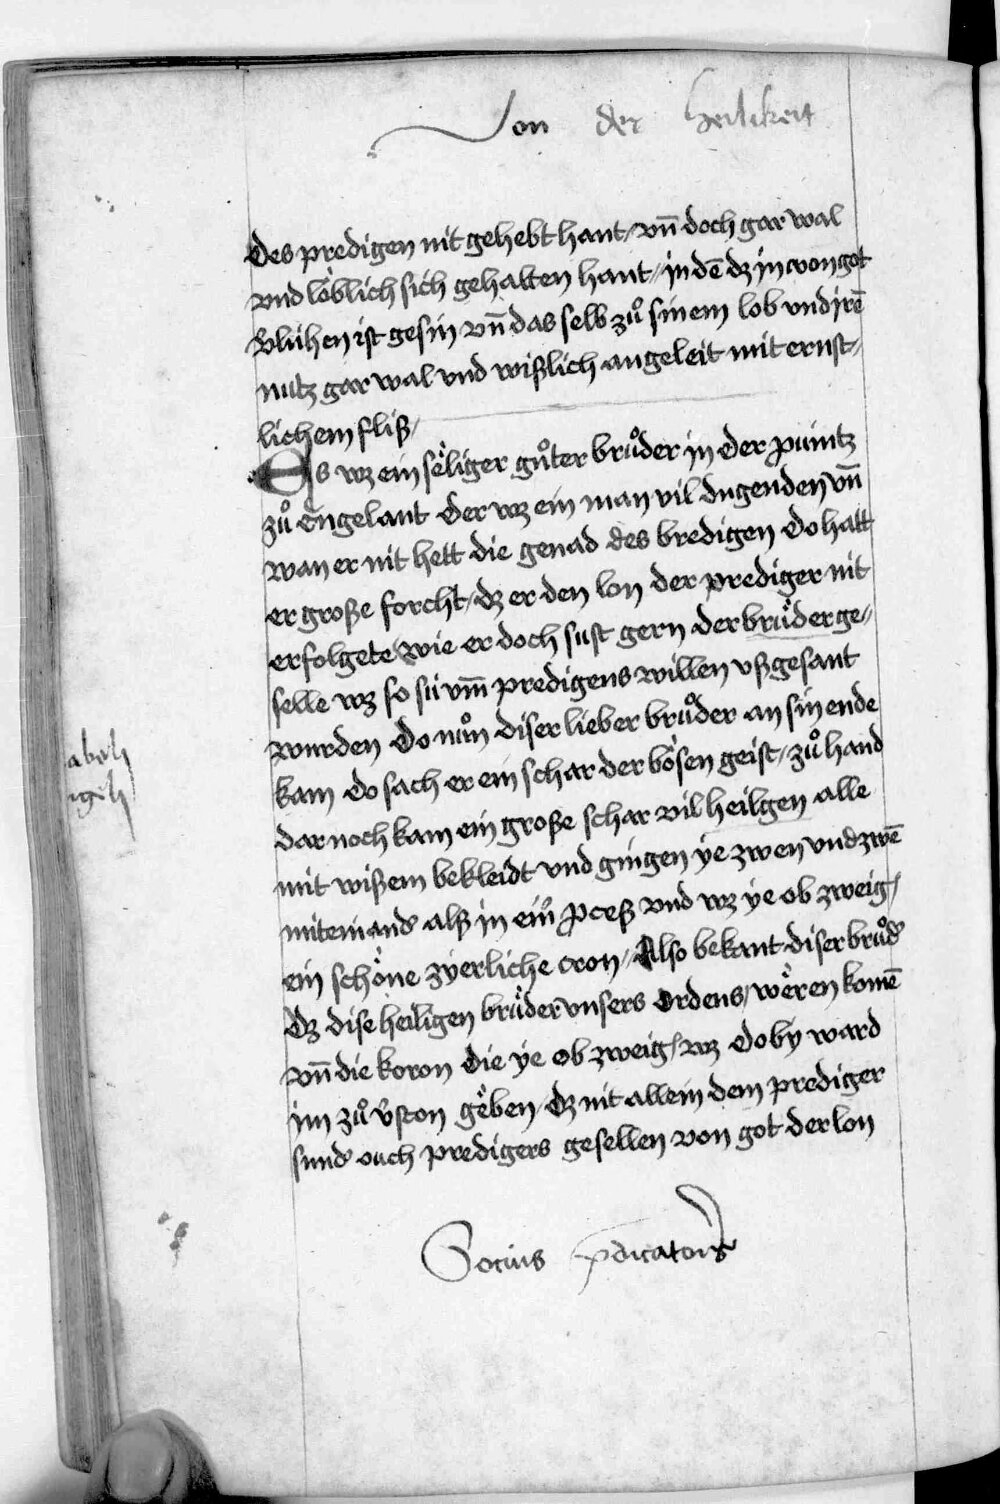 Von der heilikeit
des predigen nit gehebt hant / vn̄ doch gar wal
vnd loͤblich sich gehalten hant / in dē dz in von got
vlihen ist gesin vn̄ das selb zuͦ sinem lob vnd jrē
nutz gar wal vnd wißlich angeleit mit ernst /
lichem fliß /
Es wz ein seͤliger guͦter bruͦder in der puintz
zuͦ Engelant der wz ein man vil dugenden vn̄
wan er nit hett die genad des bredigen Do hatt
er große forcht / dz er den lon der prediger nit
erfolgete / wie er doch sust gern der bruͤder ge //
selle wz so si vm̄ predigens willen vßgesant
wurden Do nuͦn diser lieber bruͦder an sin ende
kam do sach er ein schar der boͤsen geist / zuͦ hand
dar noch kam ein große schar vil heilgen alle
mit wißem bekleidt vnd gingen ye zwen vnd zwē
miteinand' alß in ein' pceß vnd wz ye ob zweig'
ein schoͤne zyerliche cron / Also bekant diser bruͦd'
Dz dise heiligen bruͤder vnsers Ordens / weͤren komē
vn̄ die koron die ye ob zweig' wz do by ward
im zuͦ v̄ston geͤben / Dz nit allein dem prediger
sund' ouch predigers gesellen von got der lon
abel
igel
Socius p̄dicatoris